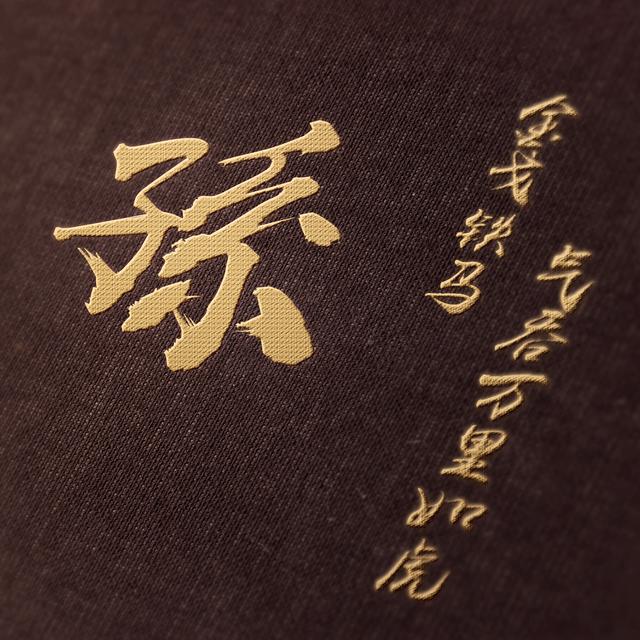 孫
金戈铁马
气吞万里如虎